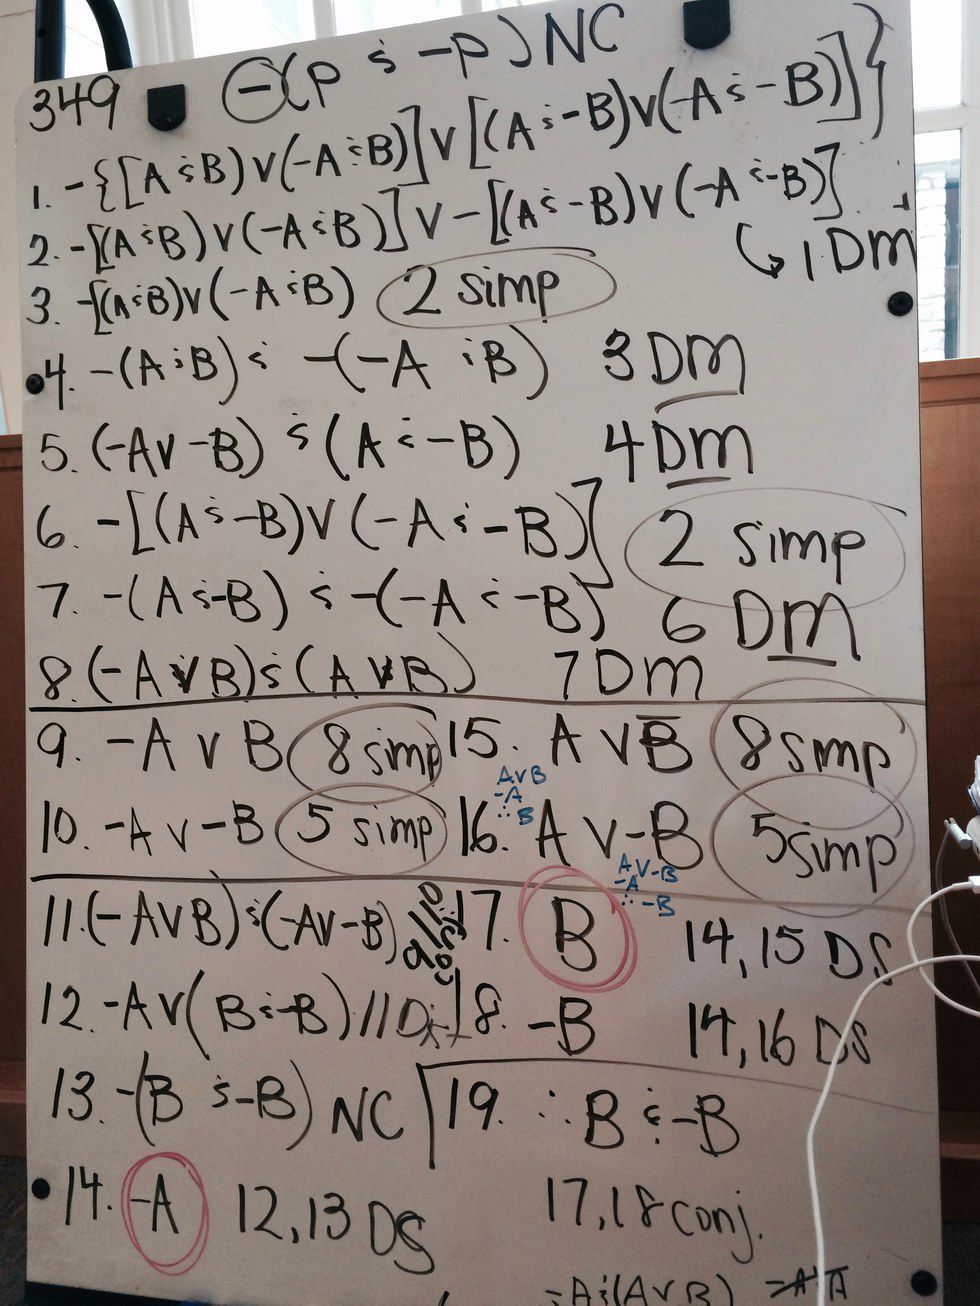 349 -(p & -p) NC
1. -{[(A & B) v (-A & B)] v [(A & -B) v (-A & -B)]}
2. -[(A & B) v (-A & B)] v -[(A & -B) v (-A & -B)]
↳ 1 DM
3. -[(A & B) v (-A & B) 2 simp
4. -(A & B) & -(-A & B) 3 DM
5. (-A v -B) & (A & -B) 4 DM
6. -[(A & -B) v (-A & -B)] 2 simp
7. -(A & -B) & -(-A & -B) 6 DM
8. (-A v B) & (A v B) 7 DM
9. -A v B 8 simp
10. -A v -B 5 simp
11. (-A v B) & (-A v -B) 9/10 conj
12. -A v (B & -B) 11 Dist
13. -(B & -B) NC
14. -A 12, 13 DS
15. A v B 8 simp
A v B
-A
∴ B
16. A v -B 5 simp
A v -B
-A
∴ -B
17. B 14, 15 DS
18. -B 14, 16 DS
19. ∴ B & -B
17, 18 conj.
-A & (A v B)